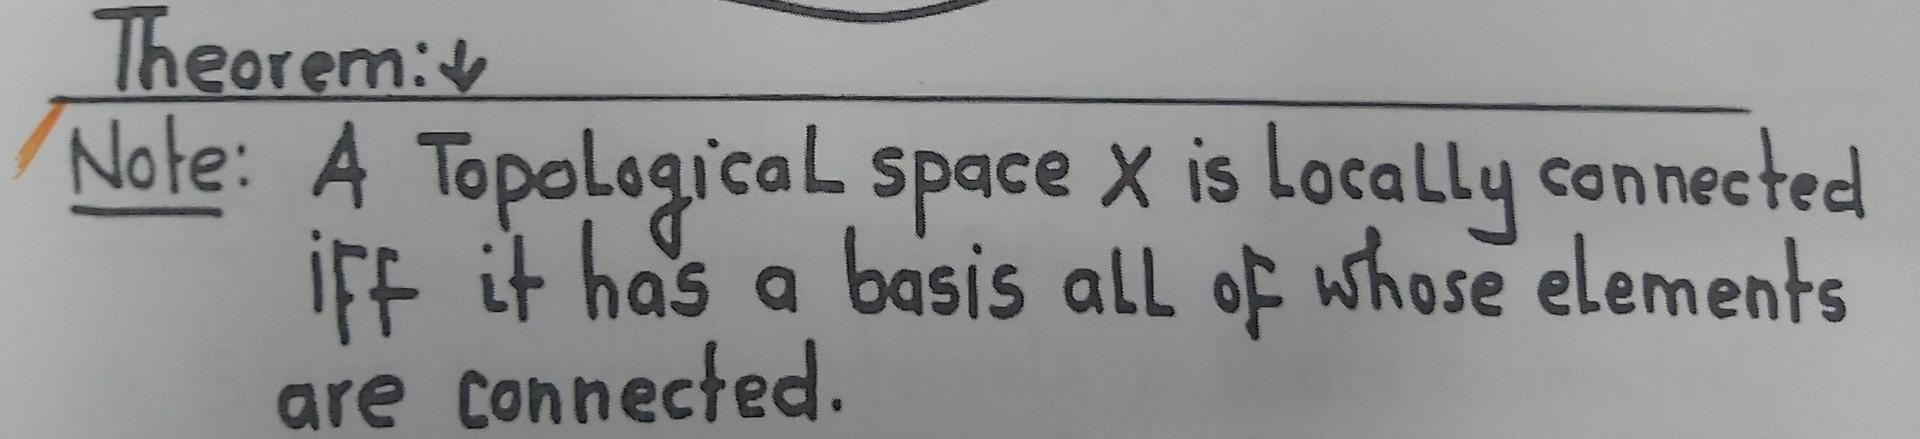 Theorem:↓
Note: A Topological space X is locally connected
iff it has a basis all of whose elements
are connected.